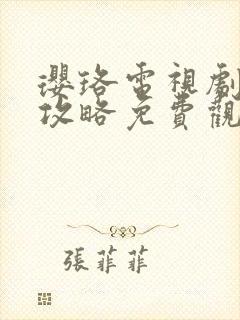 瓔珞電視劇
攻略免費觀
張菲菲